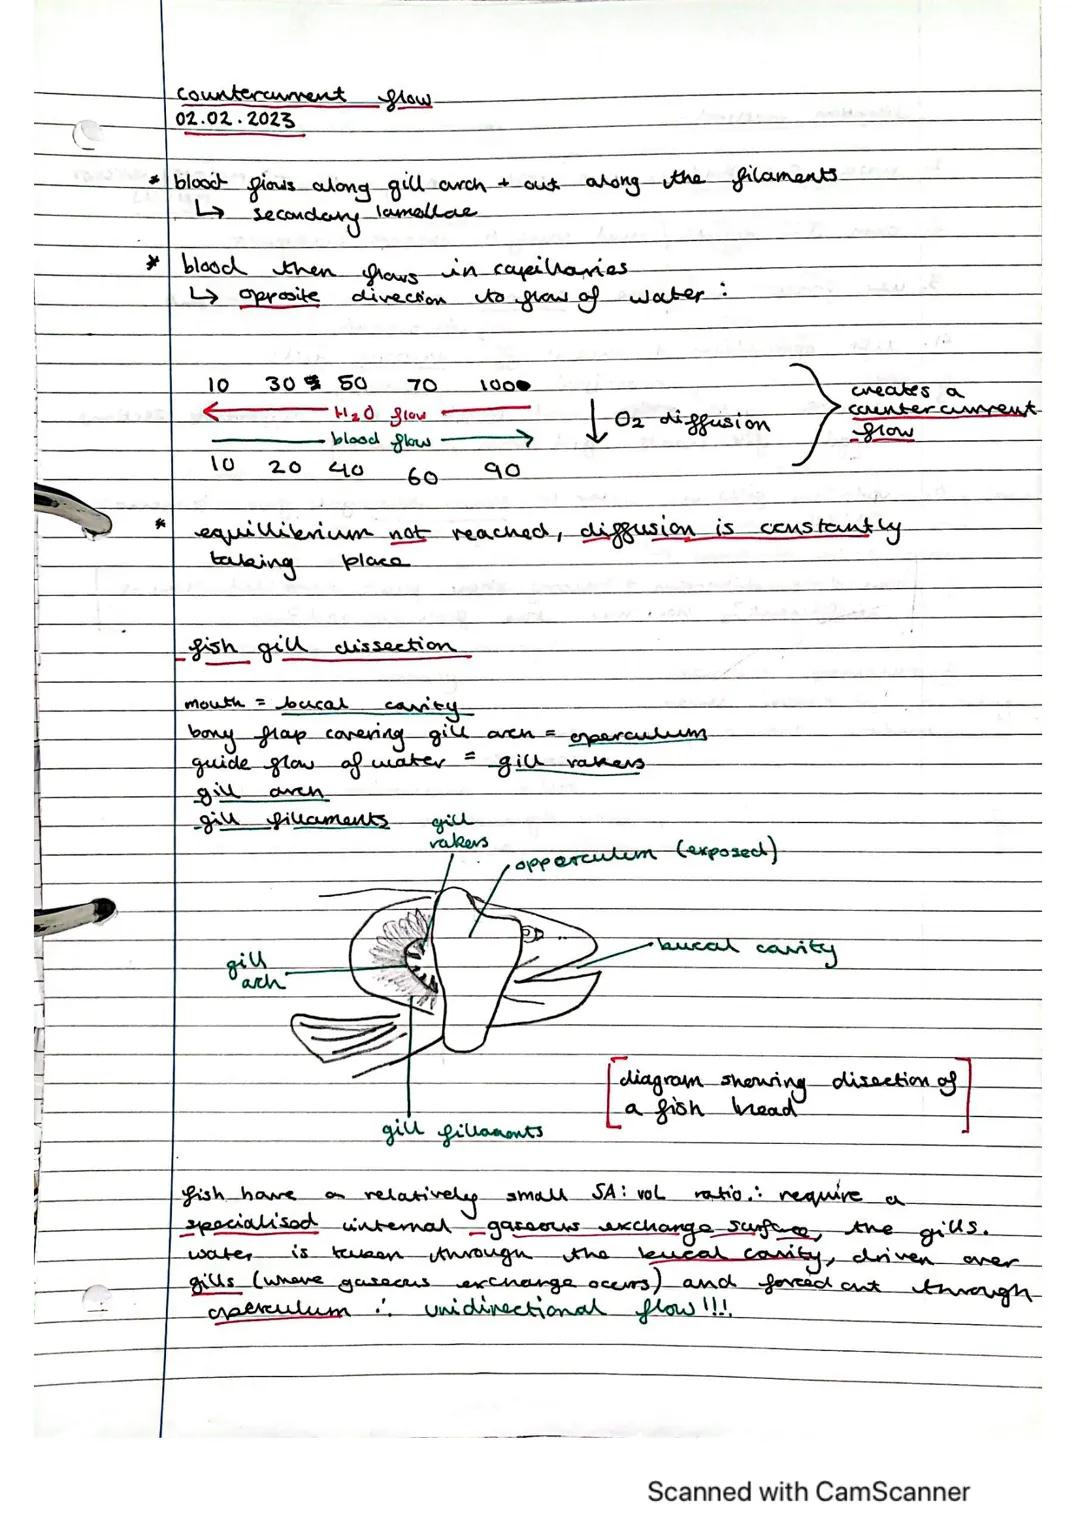 countercurrent flow
02.02.2023
* blood flows along gill arch + out along the filaments
↳ secondary lamellae
* blood then flows in capillaries
↳ opposite direction to flow of water :
10 30 50 70 100
← H₂O flow
blood flow →
10 20 40 60 90
↓ O₂ diffusion
creates a
counter current
flow
* equillibrium not reached, diffusion is constantly
taking place
fish gill dissection
mouth = bucal cavity
bony flap covering gill arch = operculum
guide flow of water = gill rakers
gill arch
gill fillaments
gill
rakers
opperculum (exposed)
bucal cavity
gill
arch
gill fillaments
[diagram showing disection of
a fish head]
fish have a relatively small SA: vol ratio ∴ require a
specialised internal gaseous exchange surface, the gills.
water is taken through the bucal cavity, driven over
gills (where gaseous exchange occurs) and forced out through
operculum ∴ unidirectional flow!!!
Scanned with CamScanner